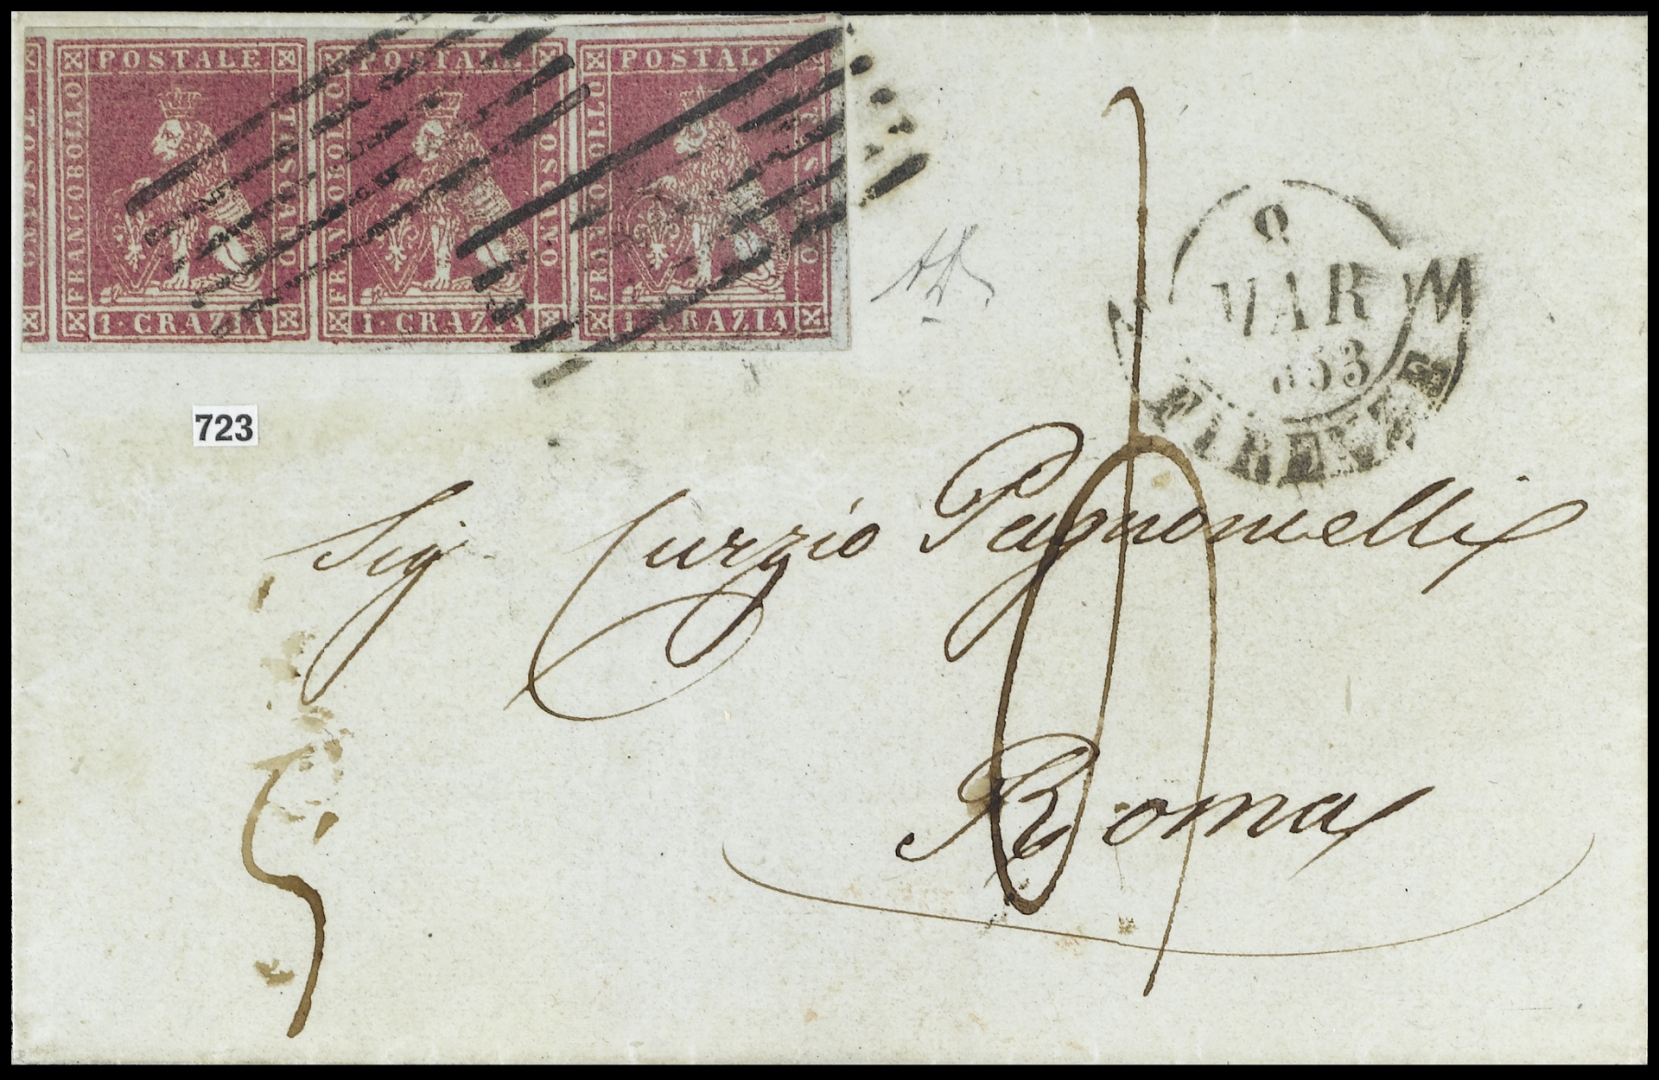 FRANCOBOLLO POSTALE TOSCANO 1·CRAZIA
FRANCOBOLLO POSTALE TOSCANO 1·CRAZIA
FRANCOBOLLO POSTALE TOSCANO 1·CRAZIA
MAR
FIRENZE
723
Sig Curzio
Roma